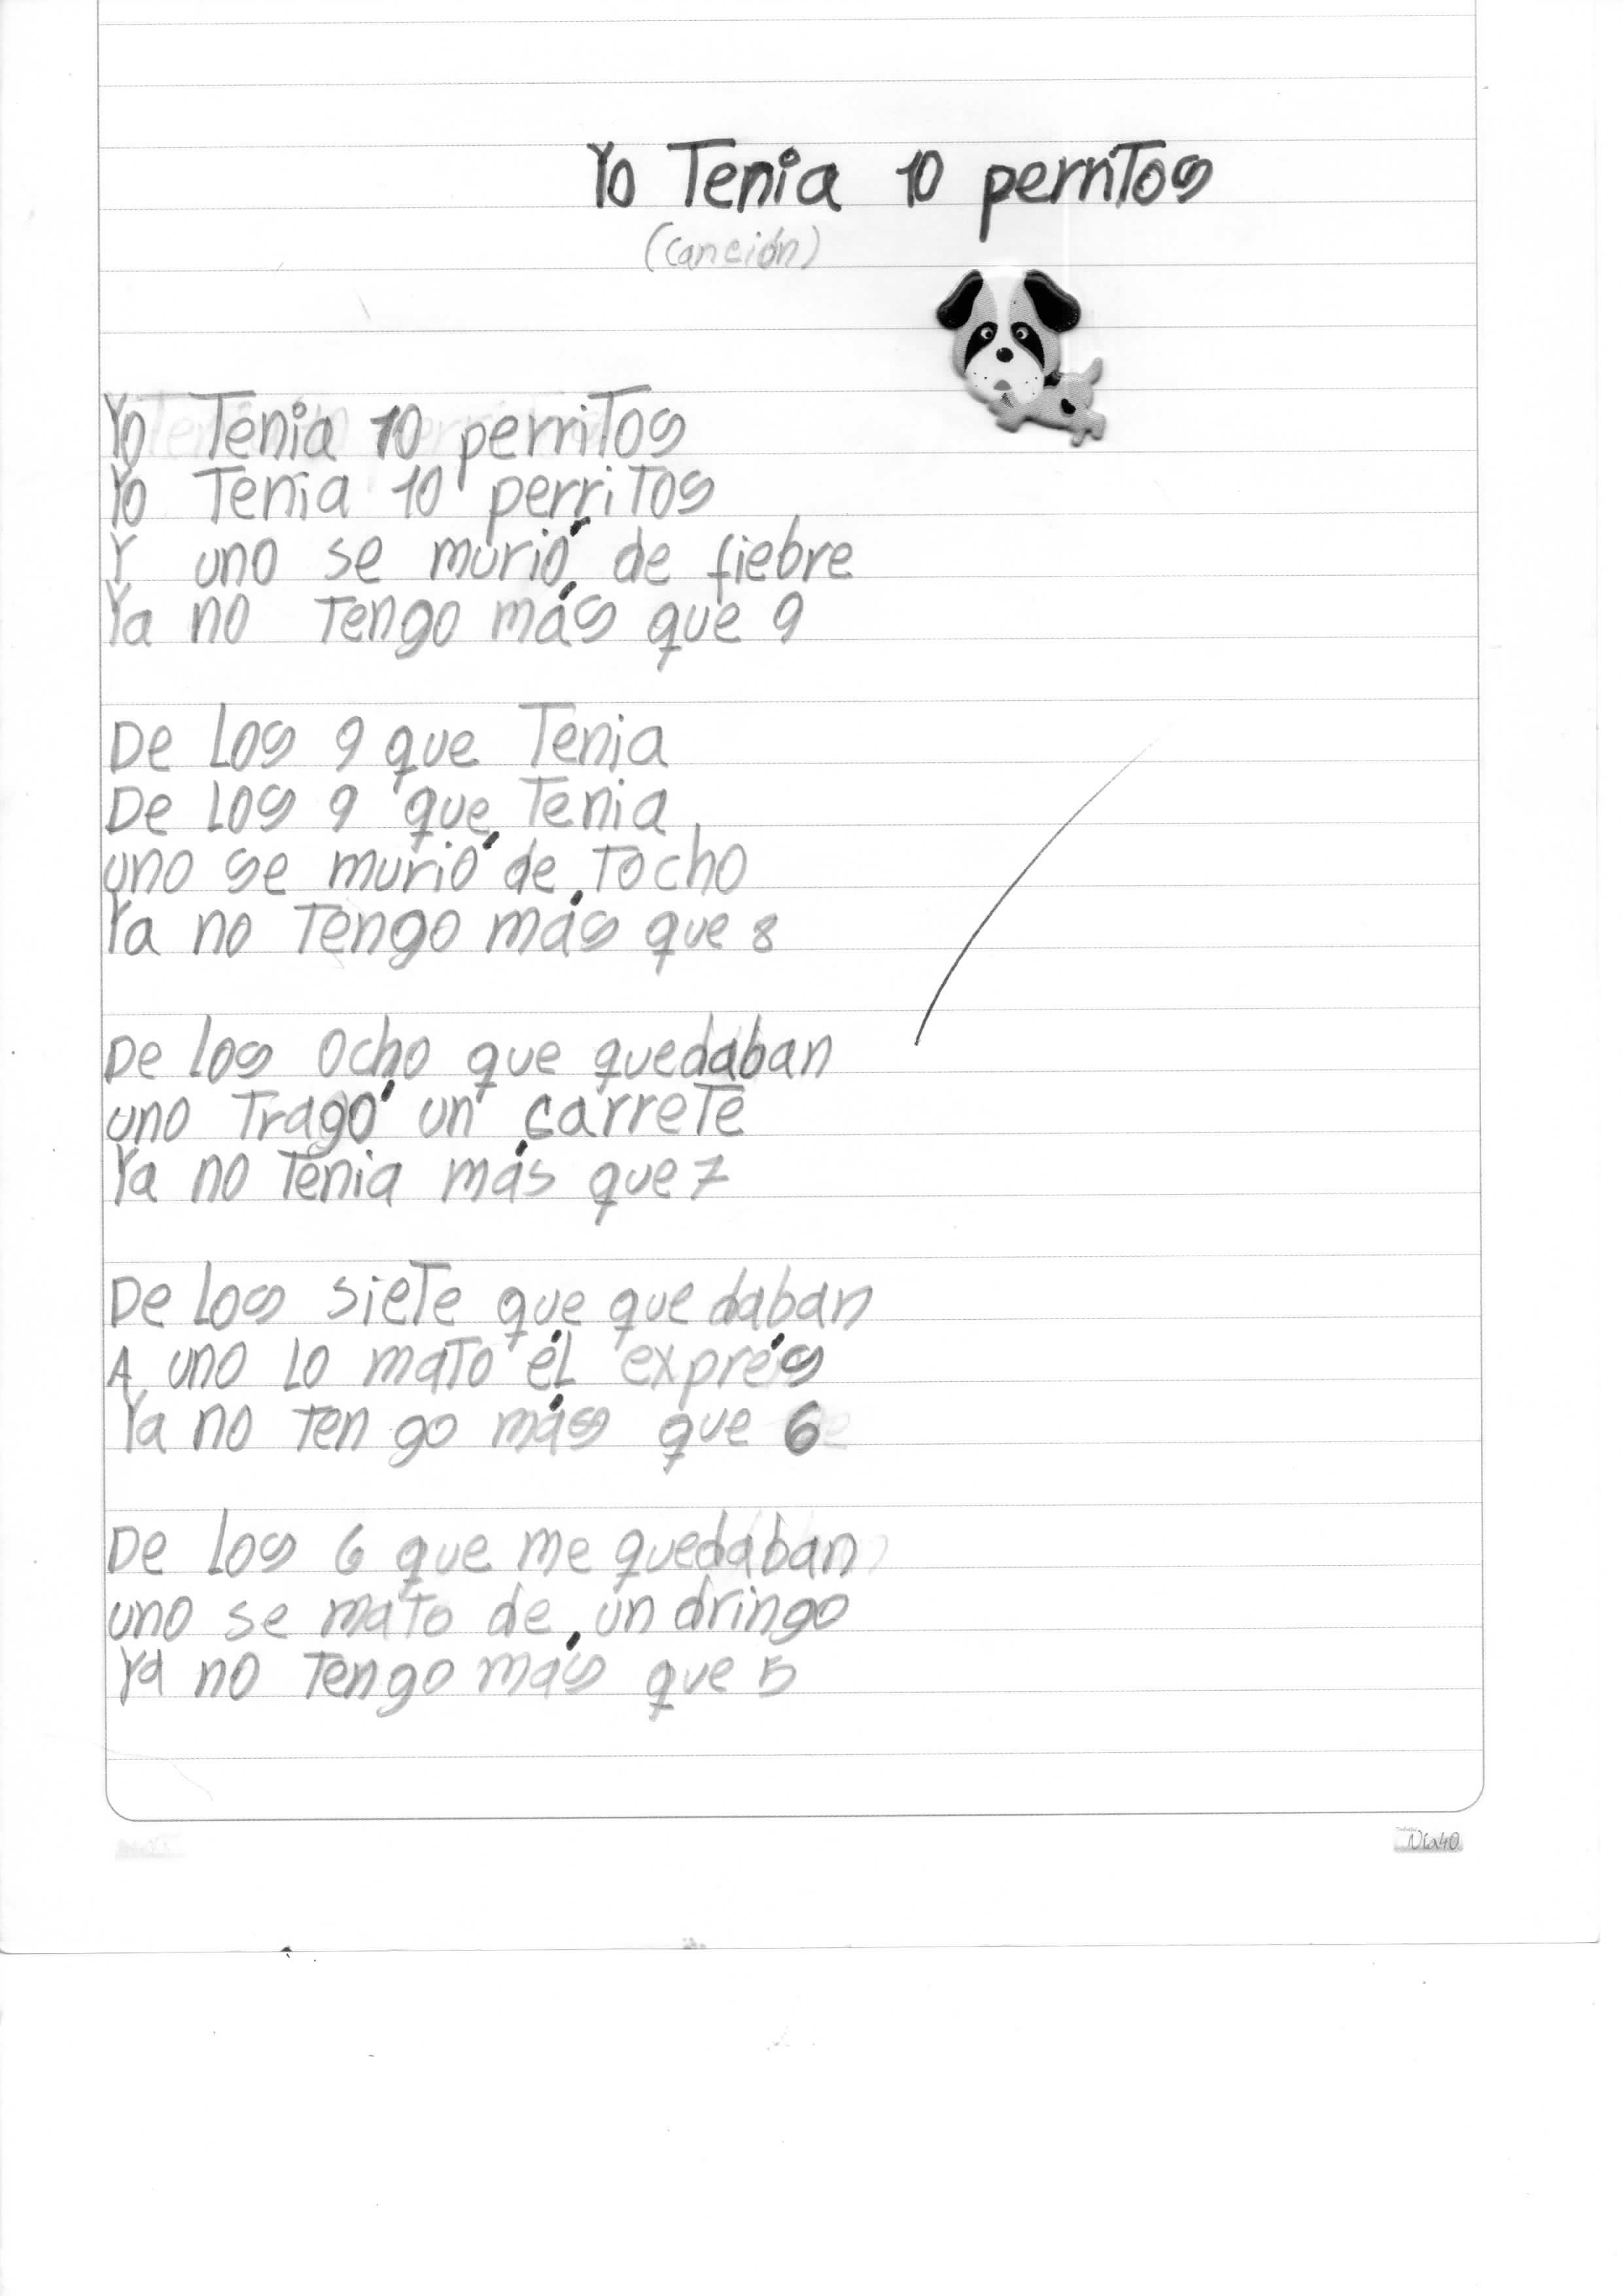 Yo Tenia 10 perritos
(canción)
Yo Tenia 10 perritos
Yo Tenia 10 perritos
Y uno se murió de fiebre
Ya no Tengo más que 9
De Los 9 que Tenia
De Los 9 que Tenia
uno se murió de Tocho
Ya no Tengo más que 8
De los Ocho que quedaban
uno Tragó un carrete
Ya no Tenia más que 7
De Los siete que que daban
A uno Lo mato él exprés
Ya no Ten go más que 6
De los 6 que me quedaban
uno se mato de un dringo
Ya no Tengo más que 5